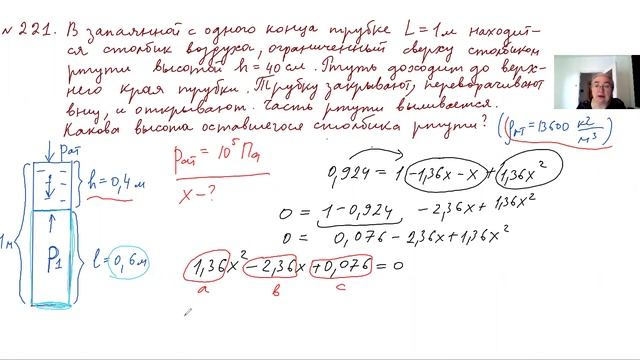 № 221. В запаянной с одного конца трубке L = 1м находит-
ся столбик воздуха, ограниченный сверху столбиком
ртути высотой h = 40 см. Ртуть доходит до верх-
него края трубки. Трубку закрывают, переворачивают
вниз, и открывают. Часть ртути выливается.
Какова высота оставшегося столбика ртути? (ρрт = 13600 кг/м³)
Pат
h = 0,4 м
1м
P1
l = 0,6м
Pат = 10⁵ Па
x - ?
0,924 = 1 - 1,36x - x + 1,36x²
0 = 1 - 0,924 - 2,36x + 1,36x²
0 = 0,076 - 2,36x + 1,36x²
1,36x² - 2,36x + 0,076 = 0
a b c